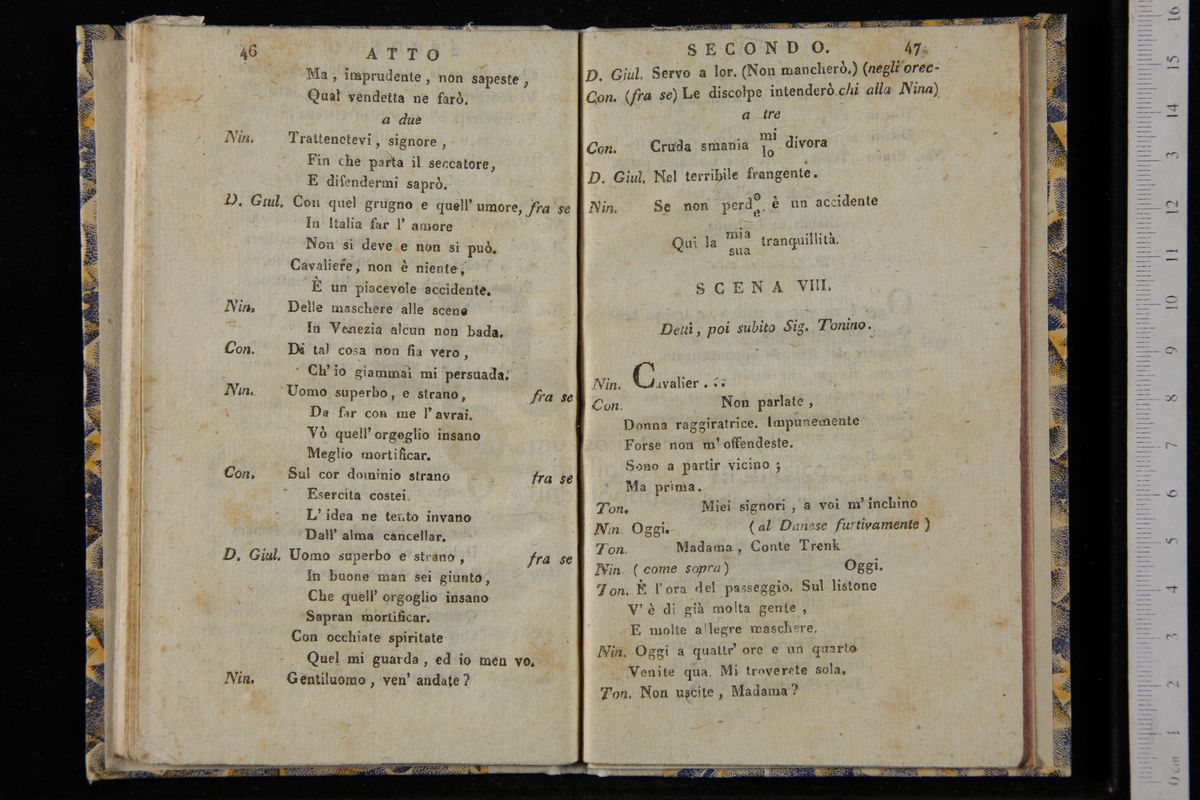 46 ATTO
Ma, imprudente, non sapeste,
Qual vendetta ne farò.
a due
Nin. Trattenetevi, signore,
Fin che parta il seccatore,
E difendermi saprò.
D. Giul. Con quel grugno e quell' umore, fra se
In Italia far l' amore
Non si deve e non si può.
Cavaliere, non è niente,
È un piacevole accidente.
Nin. Delle maschere alle scene
In Venezia alcun non bada.
Con. Di tal cosa non fia vero,
Ch' io giammai mi persuada.
Nin. Uomo superbo e strano, fra se
Da far con me l' avrai.
Vò quell' orgoglio insano
Meglio mortificar.
Con. Sul cor dominio strano fra se
Esercita costei.
L' idea ne tento invano
Dall' alma cancellar.
D. Giul. Uomo superbo e strano, fra se
In buone man sei giunto,
Che quell' orgoglio insano
Sapran mortificar.
Con occhiate spiritate
Quel mi guarda, ed io men vo.
Nin. Gentiluomo, ven' andate?
SECONDO. 47
D. Giul. Servo a lor. (Non mancherò.) (negli orec-
Con. (fra se) Le discolpe intenderò chi alla Nina)
a tre
Con. Cruda smania mi lo divora
D. Giul. Nel terribile frangente.
Nin. Se non perd o e è un accidente
Qui la mia sua tranquillità.
SCENA VIII.
Detti, poi subito Sig. Tonino.
Nin. Cavalier . . .
Con. Non parlate,
Donna raggiratrice. Impunemente
Forse non m' offendeste.
Sono a partir vicino;
Ma prima.
Ton. Miei signori, a voi m' inchino
Nin Oggi. (al Danese furtivamente)
Ton. Madama, Conte Trenk
Nin (come sopra) Oggi.
Ton. È l' ora del passeggio. Sul listone
V' è di già molta gente,
E molte allegre maschere.
Nin. Oggi a quattr' ore e un quarto
Venite qua. Mi troverete sola.
Ton. Non uscite, Madama?
0 cm 1 2 3 4 5 6 7 8 9 10 11 12 13 14 15 16